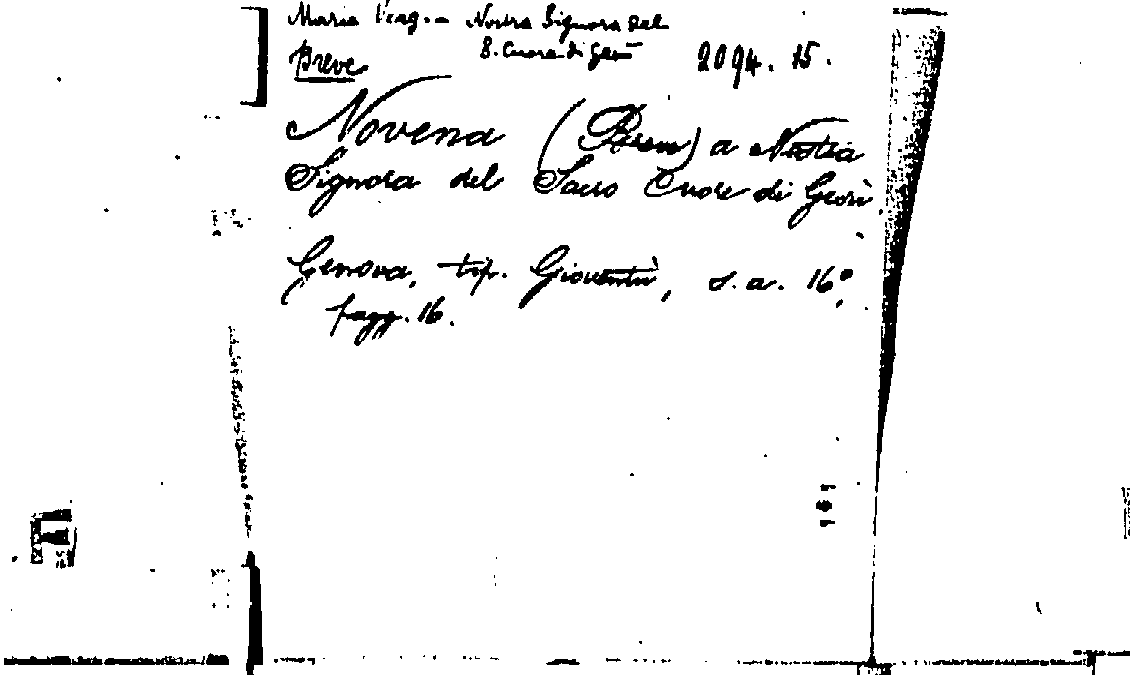 Maria Verg. - Nostra Signora del
S. Cuore di Gesù
Breve
2094. 15.
Novena (Breve) a Nostra
Signora del Sacro Cuore di Gesù.
Genova, tip. Gioventù, s. a. 16°,
pagg. 16.